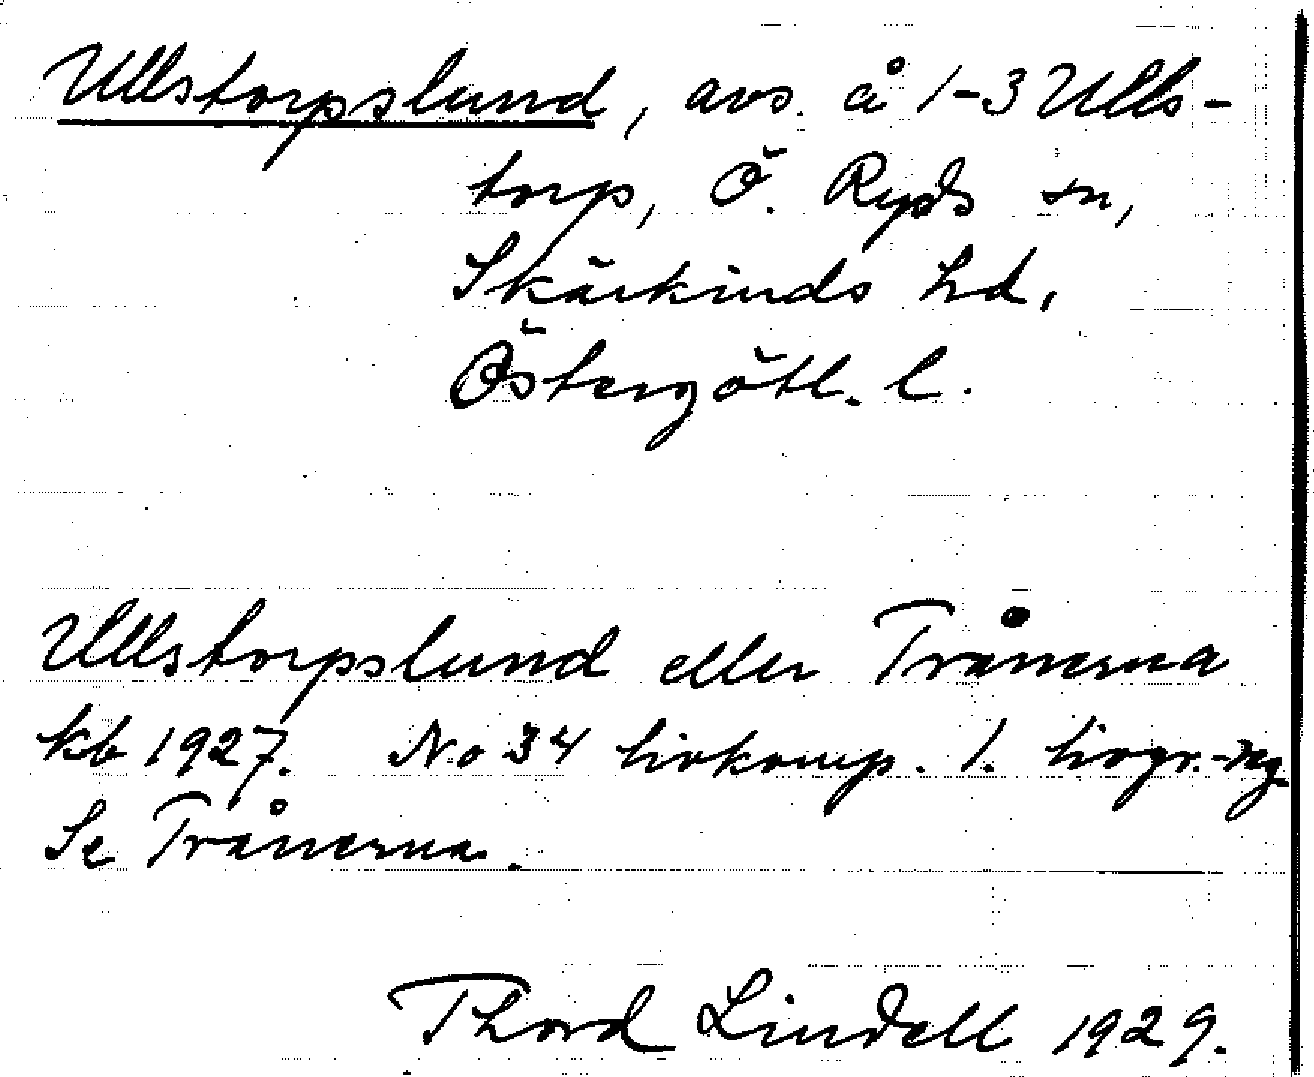 Ullstorpslund, avs. å 1-3 Ulls-
torp, Ö. Ryds sn,
Skärkinds hd,
Östergötl. l.
Ullstorpslund eller Trånerna
kb 1927. No 34 livkomp. 1. livgr.-reg.
Se Trånerna.
Thord Lindell 1929.